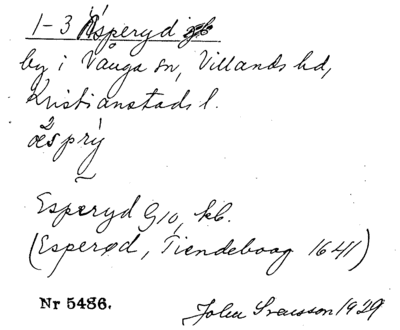 1-3 Äsperyd
by i Vånga sn, Villands hd,
Kristianstads l.
Esperyd G10, kb.
(Esperød, Tiendeboog 1641)
Nr 5486.
John Svensson 1929